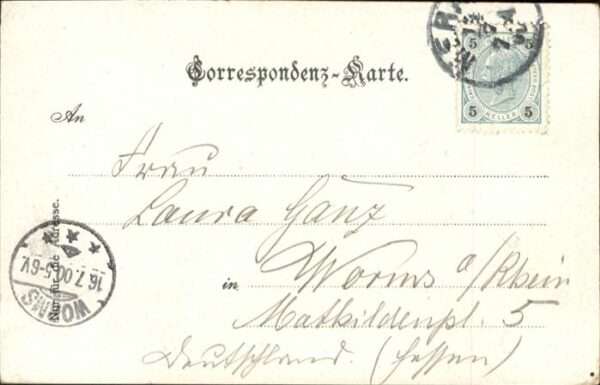 5 5
Correspondenz-Karte.
5 HELLER 5
An
Frau
Laura Ganz
in Worms a/Rhein
Mathildenpl. 5
Deutschland. (Hessen)
Nur für die Adresse.
WORMS
16.7.00.5-6V.